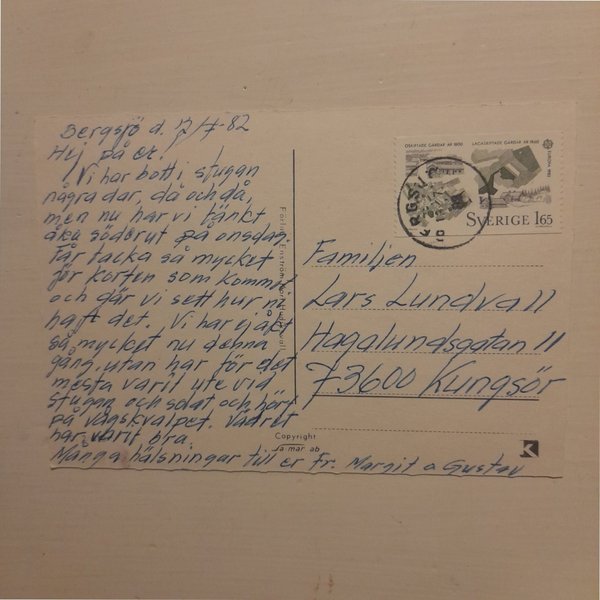 Bergsjö d. 12/7-82
Hej på er.
Vi har bott i stugan
några dar, då och då,
men nu har vi tänkt
åka söderut på onsdag.
Får tacka så mycket
för korten som kommit
och där vi sett hur ni
haft det. Vi har ej åkt
så mycket nu denna
gång, utan har för det
mesta varit ute vid
stugan och solat och hört
på vågskvalpet. Vädret
har varit bra.
Många hälsningar till er Fr. Margit o Gustav
Copyright
Ja-mar ab
OSKIFTADE GÅRDAR ÅR 1800
LAGASKIFTADE GÅRDAR ÅR 1840
EUROPA
SVERIGE 165
Familjen
Lars Lundvall
Hagalundsgatan 11
73600 Kungsör